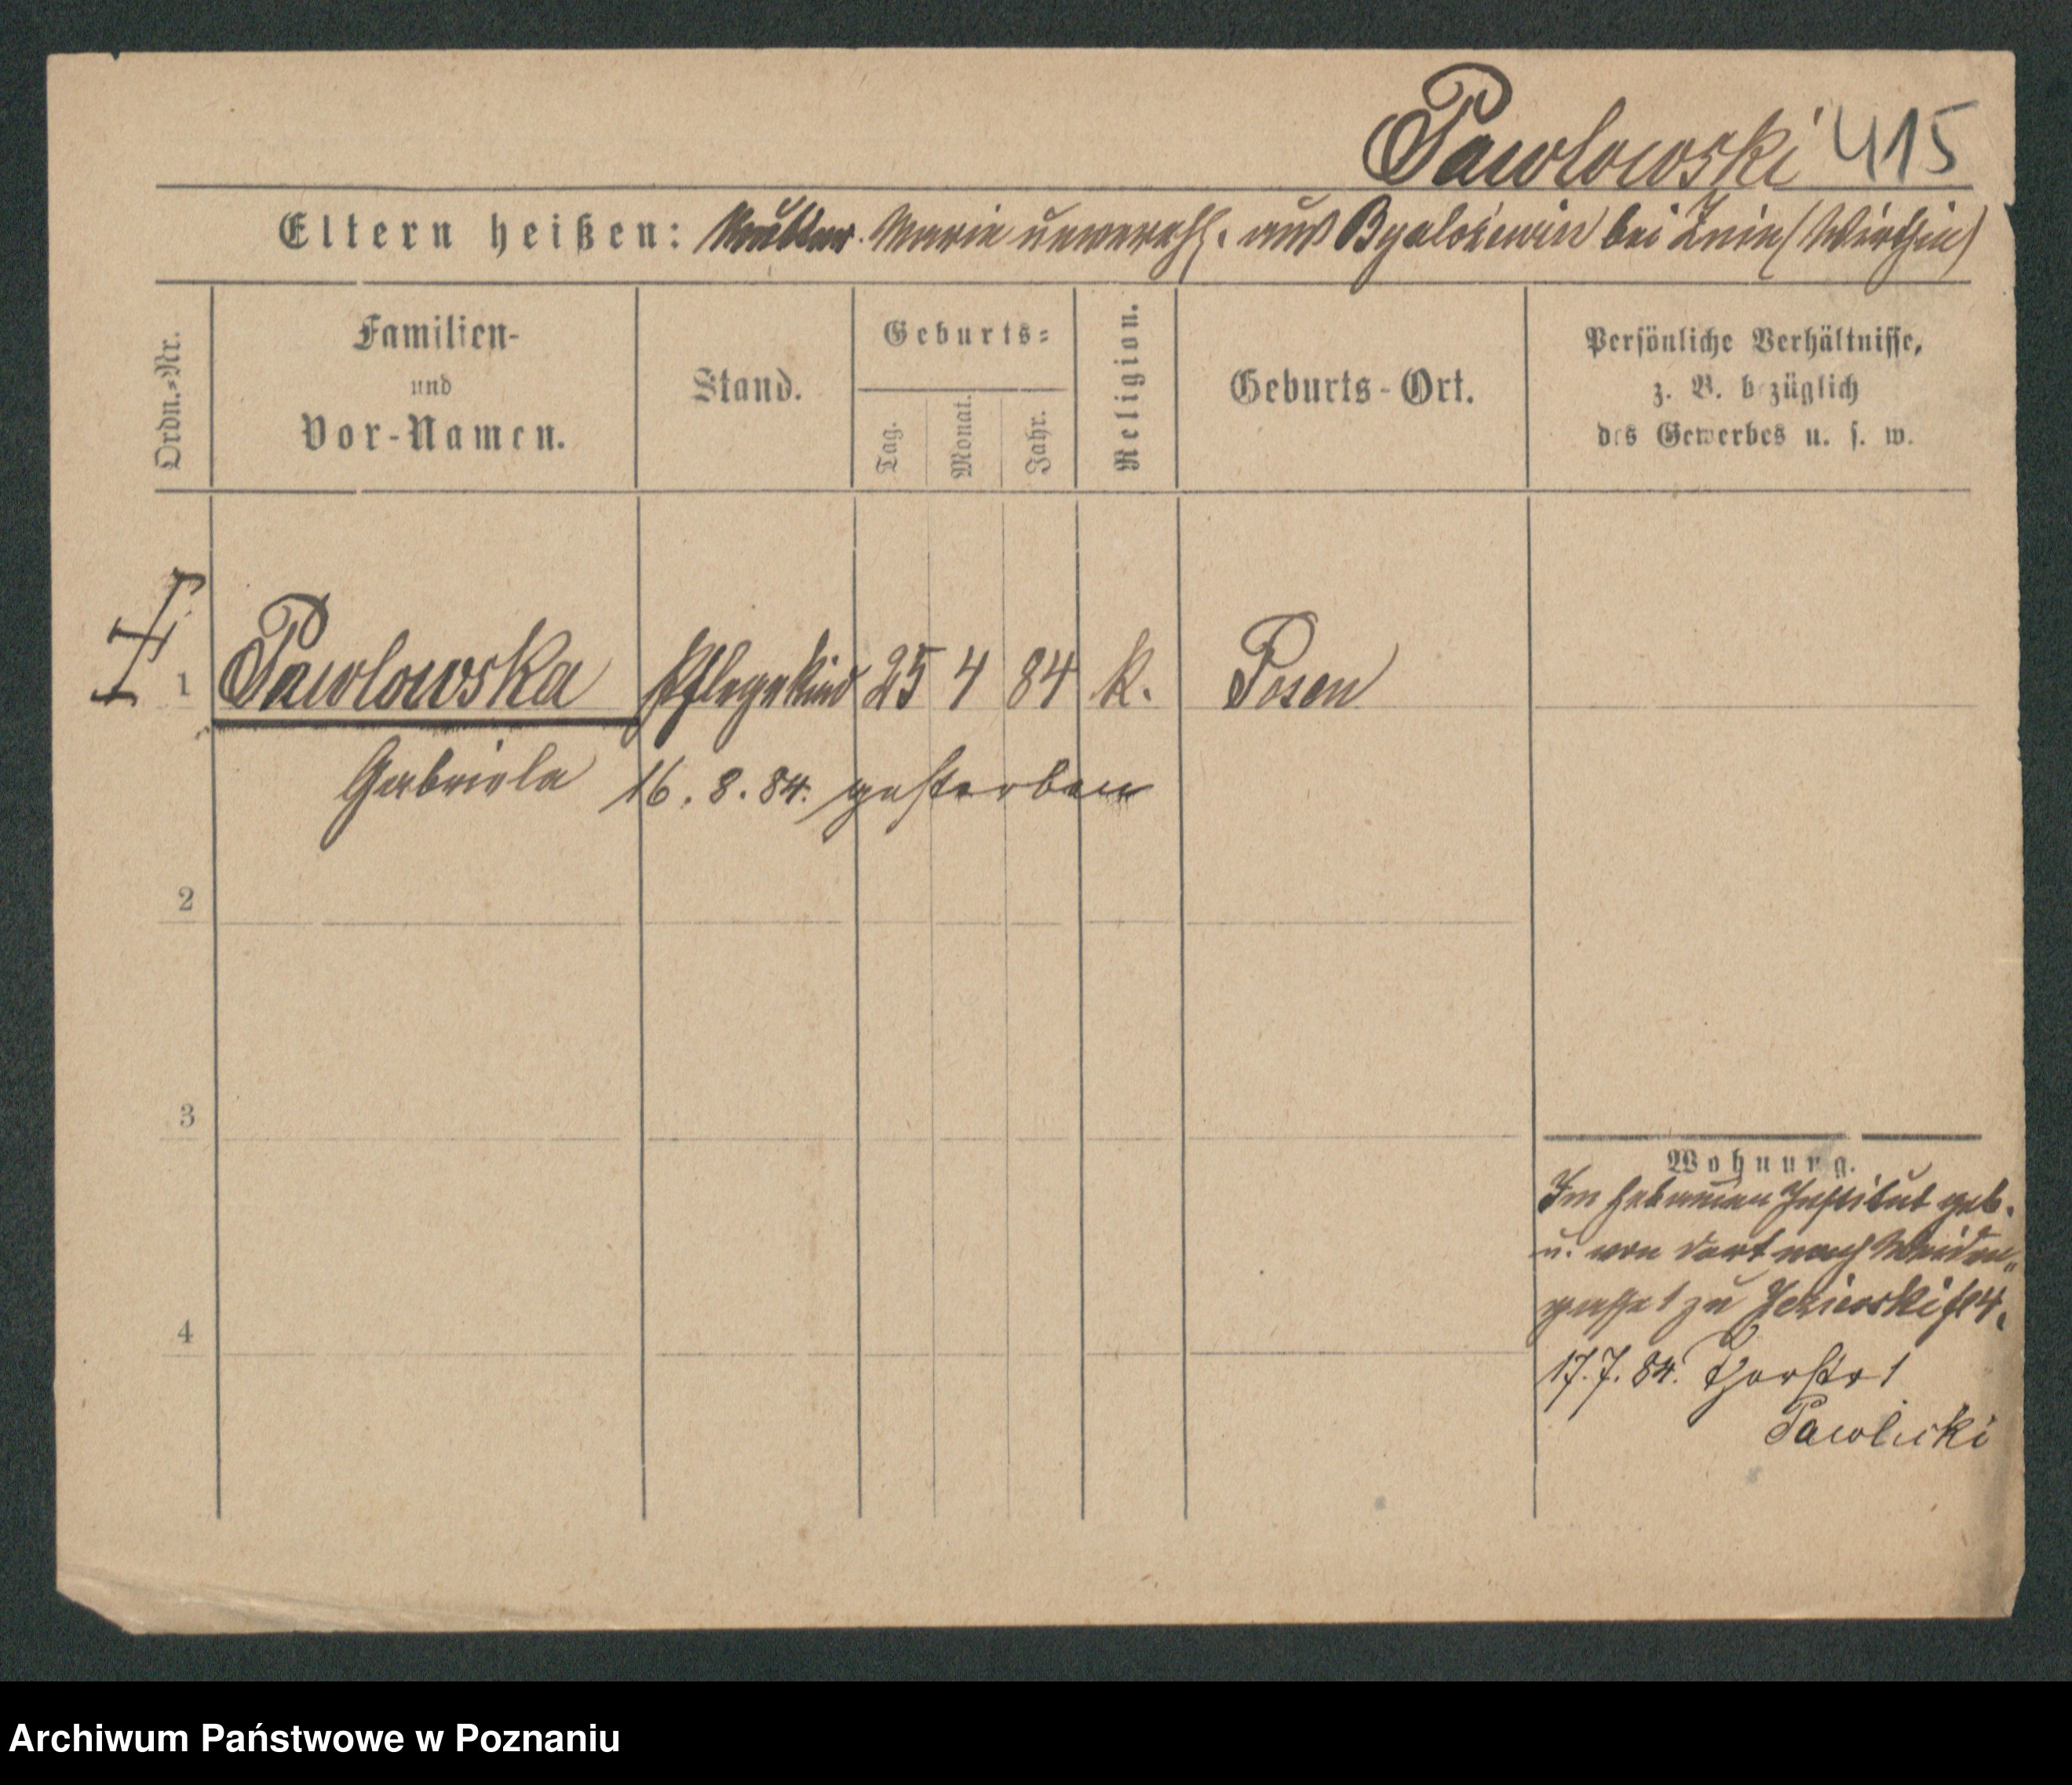 Pawlowski 415
Eltern heißen: Mutter. Marie unvereh. aus bei Znin (Wirthin)
Ordn.=Nr.
Familien-
und
Vor-Namen.
Stand.
Geburts=
Tag.
Monat.
Jahr.
Religion.
Geburts-Ort.
Persönliche Verhältnisse,
z. B. bezüglich
des Gewerbes u. s. w.
1 Pawlowska Pflegekind 25 4 84 k. Posen
Gabriela 16. 8. 84. gestorben
2
3
4
Wohnung.
Im Hebammen Institut geb.
u. von dort nach Weiden„
gasse 1 zu
17. 7. 84. Thorstr 1
Pawlicki
Archiwum Państwowe w Poznaniu